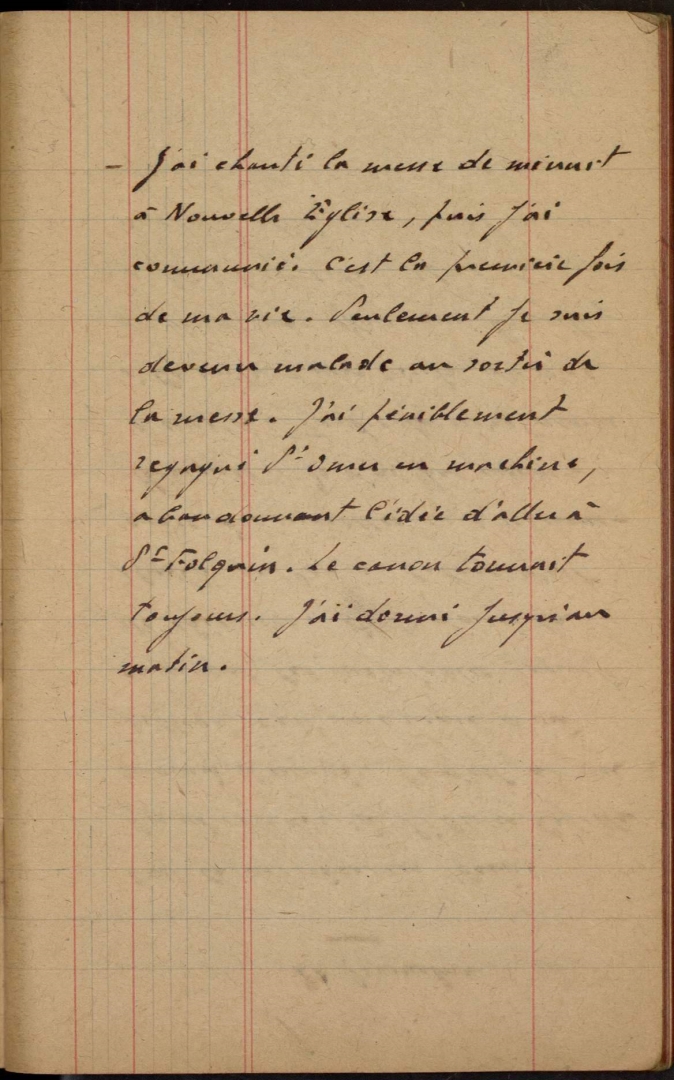 – J'ai chanté la messe de minuit
à Nouvelle Eglise, puis j'ai
communié. C'est la première fois
de ma vie. Seulement je suis
devenu malade au sortir de
la messe. J'ai péniblement
regagné St Omer en machine,
abandonnant l'idée d'aller à
St Folquin. Le canon tonnait
toujours. J'ai dormi jusqu'au
matin.